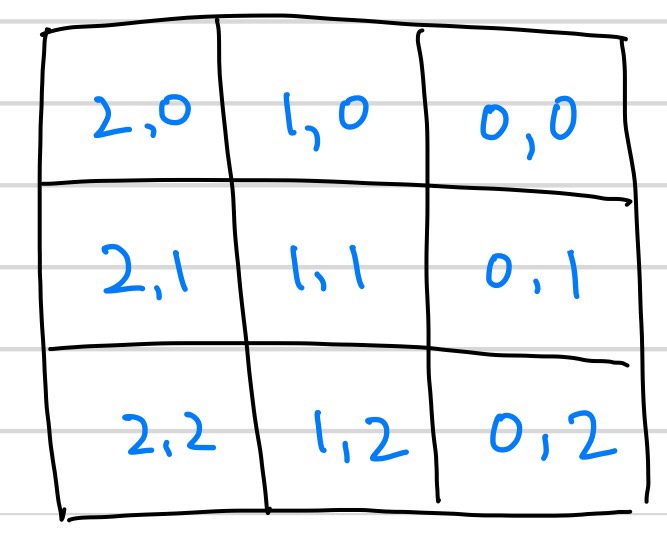 2,0 1,0 0,0
2,1 1,1 0,1
2,2 1,2 0,2